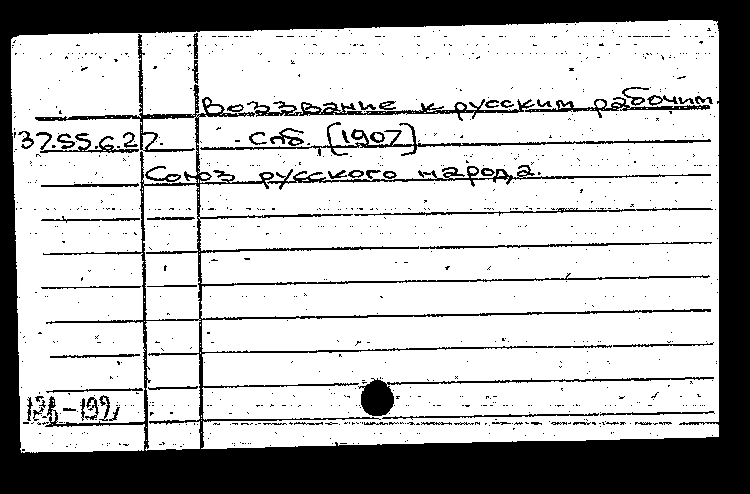 Воззвание к русским рабочим.
37.55.6.27.
Спб., [1907].
Союз русского народа.